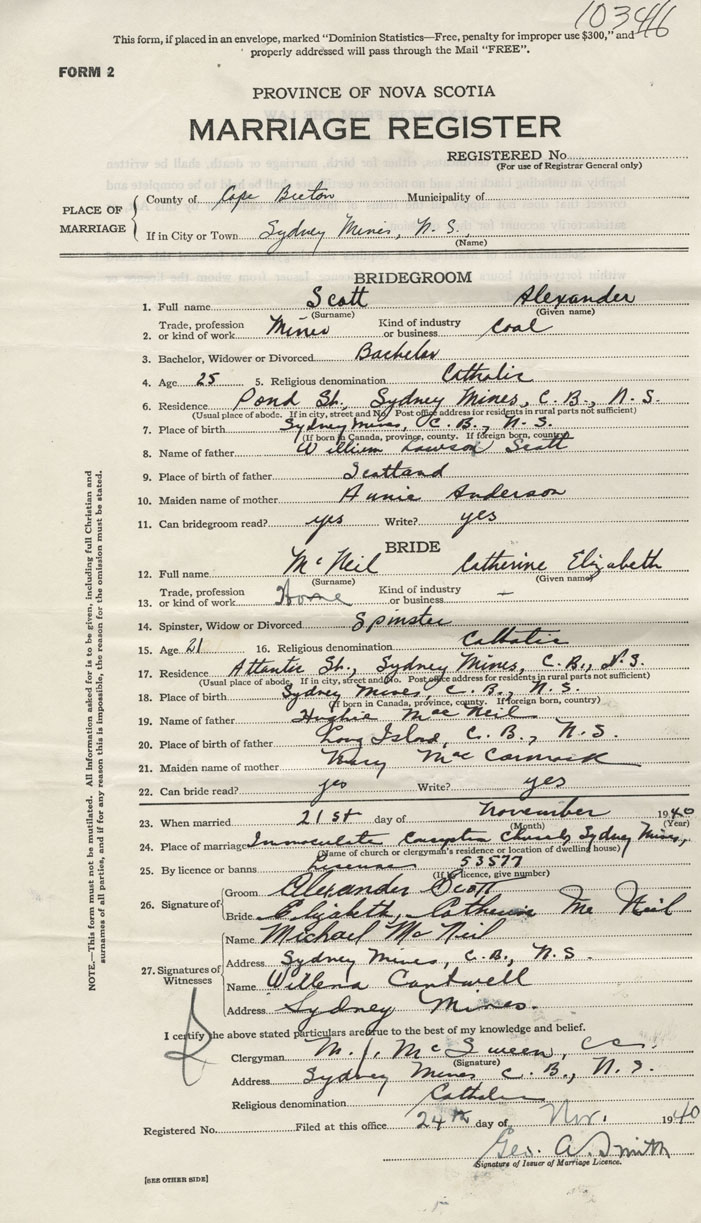 103446
This form, if placed in an envelope, marked "Dominion Statistics—Free, penalty for improper use $300," and
properly addressed will pass through the Mail "FREE".
FORM 2
PROVINCE OF NOVA SCOTIA
MARRIAGE REGISTER
REGISTERED No.
(For use of Registrar General only)
PLACE OF MARRIAGE
County of Cape Breton Municipality of
If in City or Town Sydney Mines, N. S.
(Name)
BRIDEGROOM
1. Full name Scott Alexander
(Surname) (Given name)
2. Trade, profession or kind of work Miner Kind of industry or business Coal
3. Bachelor, Widower or Divorced Bachelor
4. Age 25 5. Religious denomination Catholic
6. Residence Pond St., Sydney Mines, C. B., N. S.
(Usual place of abode. If in city, street and No. Post office address for residents in rural parts not sufficient)
7. Place of birth Sydney Mines, C. B., N. S.
(If born in Canada, province, county. If foreign born, country)
8. Name of father William Lawson Scott
9. Place of birth of father Scotland
10. Maiden name of mother Annie Anderson
11. Can bridegroom read? yes Write? yes
BRIDE
12. Full name McNeil Catherine Elizabeth
(Surname) (Given name)
13. Trade, profession or kind of work Home Kind of industry or business —
14. Spinster, Widow or Divorced Spinster
15. Age 21 16. Religious denomination Catholic
17. Residence Atlantic St., Sydney Mines, C. B., N. S.
(Usual place of abode. If in city, street and No. Post office address for residents in rural parts not sufficient)
18. Place of birth Sydney Mines, C. B., N. S.
(If born in Canada, province, county. If foreign born, country)
19. Name of father Hughie MacNeil
20. Place of birth of father Long Island, C. B., N. S.
21. Maiden name of mother Mary MacCormack
22. Can bride read? yes Write? yes
23. When married 21st day of November 1940
(Month) (Year)
24. Place of marriage Immaculate Church Sydney Mines,
(Name of church or clergyman's residence or location of dwelling house)
25. By licence or banns License 53577
(If by licence, give number)
26. Signature of
Groom Alexander Scott
Bride Elizabeth, Catherine McNeil
27. Signatures of Witnesses
Name Michael McNeil
Address Sydney Mines, C. B., N. S.
Name Willena Cantwell
Address Sydney Mines.
I certify the above stated particulars are true to the best of my knowledge and belief.
Clergyman M. J. McSween, cc.
(Signature)
Address Sydney Mines C. B., N. S.
Religious denomination Catholic
Registered No. Filed at this office 24th day of Nov. 1940
Geo. A. Smith
Signature of Issuer of Marriage Licence.
[SEE OTHER SIDE]
NOTE.—This form must not be mutilated. All information asked for is to be given, including full Christian and
surnames of all parties, and if for any reason this is impossible, the reason for the omission must be stated.